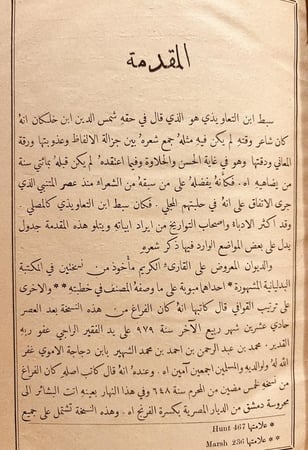 المقدمة
سبط ابن التعاويذي هو الذي قال في حقه شمس الدين ابن خلكان انهُ
كان شاعر وقته لم يكن فيه مثلهُ جمع شعرهُ بين جزالة الالفاظ وعذوبتها ورقة
المعاني ودقتها وهو في غاية الحسن والحلاوة وفيما اعتقدهُ لم يكن قبلهُ بمائتي سنة
من يضاهيه اه. فكأنهُ يفضلهُ على من سبقهُ من الشعراء منذ عصر المتنبي الذي
جرى الاتفاق على انهُ في حلبتهم المجلي. فكان سبط ابن التعاويذي كالمصلي.
وقد اكثر الادباء واصحاب التواريخ من ايراد ابياته ويتلو هذه المقدمة جدول
يدل على بعض المواضع الوارد فيها ذكر شعرهِ
والديوان المعروض على القارئ الكريم مأخوذ من نسختين في المكتبة
البدليانية المشهورة * احداهما مبوبة على ما وصفهُ المصنف في خطبتهِ ** والاخرى
على ترتيب القوافي قال كاتبها انهُ كان الفراغ من هذه النسخة بعد العصر
حادي عشرين شهر ربيع الآخر سنة ٩٧٩ على يد الفقير الراجي عفو ربه
القدير. محمد بن عبد الرحمن بن احمد بن محمد الشهير بابن دجاجة الاموي غفر
الله لهُ ولوالديه والمسلمين اجمعين اه. وعندهُ انهُ قال كاتب اصله كان الفراغ
من نسخه لخمس مضين من المحرم سنة ٦٤٨ وفي هذا النهار بعينه اتت البشائر الى
محروسة دمشق من الديار المصرية بكسرة الفرنج اه. وهذه النسخة تشتمل على جميع
* علامتها Hunt 467
** علامتها Marsh 236